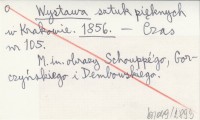 Wystawa sztuk pięknych
w Krakowie. 1856. — Czas
nr 105.
M. in. obrazy Schouppégo, Gor-
czyńskiego i Dembowskiego.